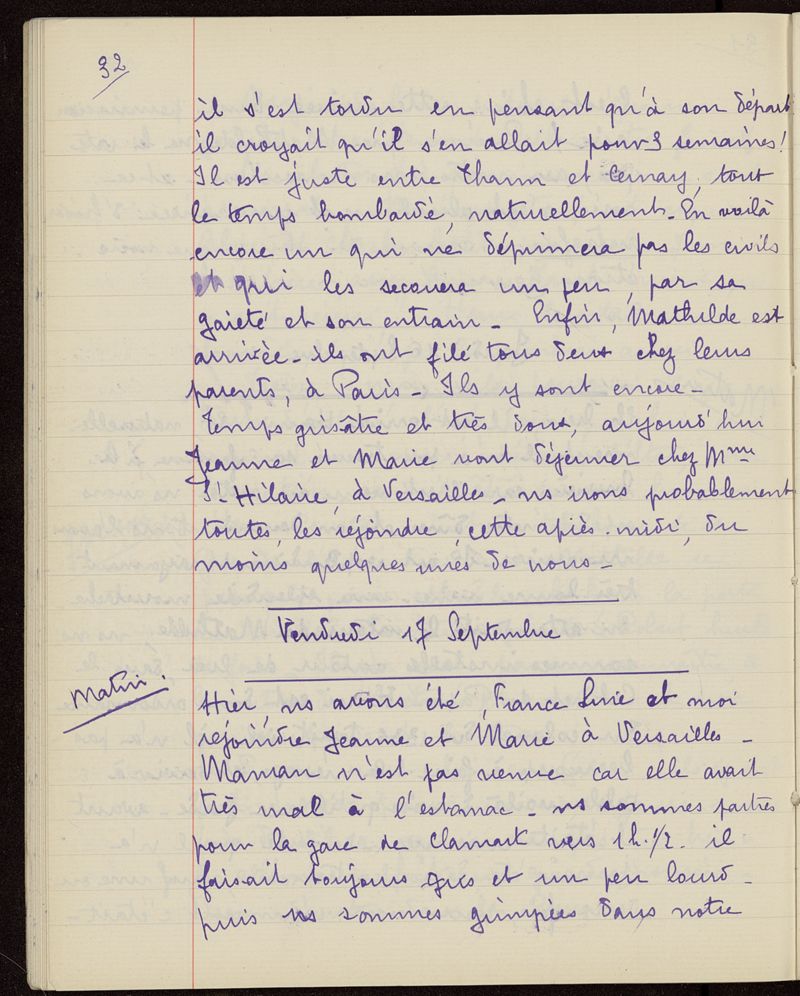 32
il s'est tordu en pensant qu'à son départ
il croyait qu'il s'en allait pour 3 semaines!
Il est juste entre Thann et Cernay, tout
le temps bombardé, naturellement - En voilà
encore un qui ne déprimera pas les civils
et qui les secouera un peu, par sa
gaieté et son entrain - Enfin, Mathilde est
arrivée - ils ont filé tous deux chez leurs
parents, à Paris - Ils y sont encore -
Temps grisâtre et très doux, aujourd'hui
Jeanne et Marie vont déjeuner chez Mme
St Hilaire, à Versailles - ns irons probablement
toutes, les rejoindre, cette après-midi, du
moins quelques unes de nous -
Vendredi 17 Septembre
Matin.
Hier, ns avons été, France, et moi
rejoindre Jeanne et Marie à Versailles -
Maman n'est pas venue car elle avait
très mal à l'estomac - ns sommes parties
pour la gare de Clamart vers 1h.1/2. il
faisait toujours gris et un peu lourd -
puis ns sommes grimpées dans notre